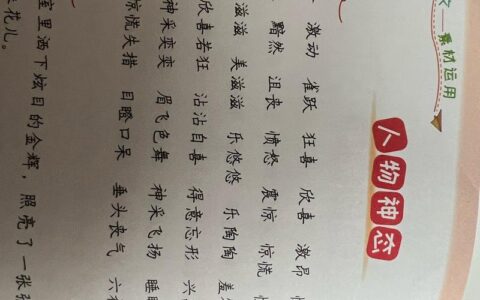 素材运用
人物神态
激动 雀跃 狂喜 欣喜 激昂
黯然 沮丧 愤怒 震惊 惊慌
滋滋 美滋滋 乐悠悠 乐陶陶
欣喜若狂 沾沾自喜 得意忘形
神采奕奕 眉飞色舞 神采飞扬
惊慌失措 目瞪口呆 垂头丧气 六
室里洒下炫目的金辉，照亮了一张
花儿。